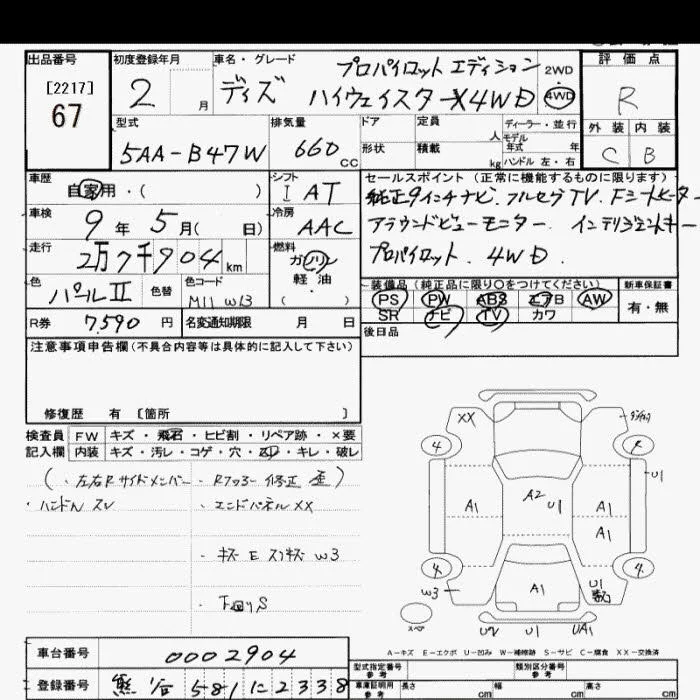 出品番号
[2217]
67
初度登録年月
2 月
車名・グレード
プロパイロット エディション
デイズ ハイウェイスターX4WD
2WD
4WD
評価点
R
外装 内装
C B
型式
5AA-B47W
排気量
660cc
ドア
形状
定員
人
積載
kg
ディーラー・並行
モデル
年式 年
ハンドル 左・右
車歴
自家用・( )
シフト
I AT
車検
9年5月( 日)
冷房
AAC
走行
2万7千904km
燃料
ガソリン
軽油
( )
色
パールII
色替
色コード
M11 W13
R券
7,590 円
名変通知期限 月 日
セールスポイント(正常に機能するものに限ります)
純正9インチナビ.フルセグTV.
アラウンドビューモニター. インテリジェントキー
プロパイロット. 4WD.
装備品(純正品に限り○をつけてください)
PS PW ABS エアB AW
SR ナビ TV カワ
新車保証書
有・無
後日品
注意事項申告欄(不具合内容等は具体的に記入して下さい)
修復歴 有 〔箇所 〕
検査員
記入欄
FW キズ・飛石・ヒビ割・リペア跡・×要
内装 キズ・汚レ・コゲ・穴・・キレ・破レ
(・左右Rサイドメンバー ・Rフロアー修正 歪)
・ハンドル スレ ・エンドパネルXX
・キズ E スリキズ W3
・下廻りS
XX
4
A1
A2
U1
A1
A1
U1
4
4
W3
A1
U1
スペア
U2 U1 UA1
A-キズ E-エクボ U-凹み W-補修跡 S-サビ C-腐食 XX-交換済
車台番号
0002904
登録番号
熊谷 581 に 2338
型式指定番号
参考
類別区分番号
参考
車庫証明用
参考
長さ cm 幅 cm 高さ cm